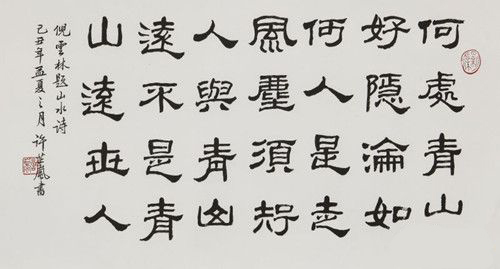 何處青山
好隱淪如
何人是走
風塵須知
人與青山
遠不是青
山遠世人
倪雲林題山水詩
己丑年孟夏之月 許 書